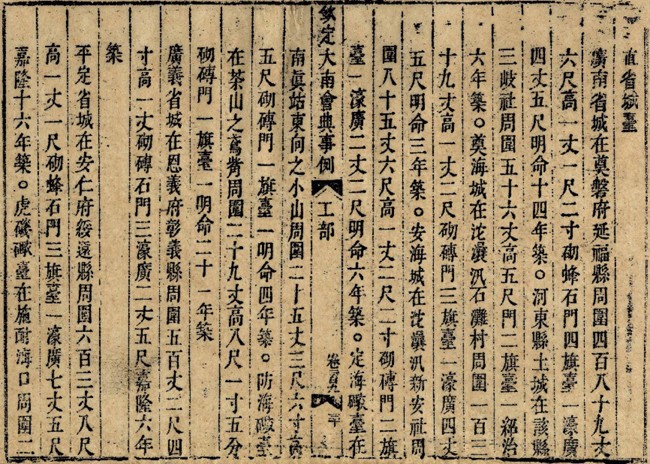 直省城臺
廣南省城在奠磐府延福縣周圍四百八十九丈
六尺高一丈一尺二寸砌蜂石門四旗臺一濠廣
四丈五尺明命十四年築。河東縣土城在該縣
三岐社周圍五十六丈高五尺門二旗臺一紹治
六年築。奠海城在沱㶞汛石灘村周圍一百三
十九丈高一丈二尺砌磚門三旗臺一濠廣四丈
五尺明命三年築。安海城在沱㶞汛新安社周
圍八十五丈六尺高一丈二尺二寸砌磚門二旗
臺一濠廣二丈二尺明命六年築。定海礮臺在
欽定大南會典事例 工部 卷二百九
南眞站東向之小山周圍二十五丈三尺六寸高
五尺砌磚門一旗臺一明命四年築。防海礮臺
在茶山之嵩前周圍二十九丈高八尺一寸五分
砌磚門一旗臺一明命二十一年築
廣義省城在思義府彰義縣周圍五百丈二尺四
寸高一丈砌磚石門三濠廣二丈五尺嘉隆六年
築
平定省城在安仁府綏遠縣周圍六百三丈八尺
高一丈一尺砌蜂石門三旗臺一濠廣七丈五尺
嘉隆十六年築。虎磯礮臺在施耐海口周圍二